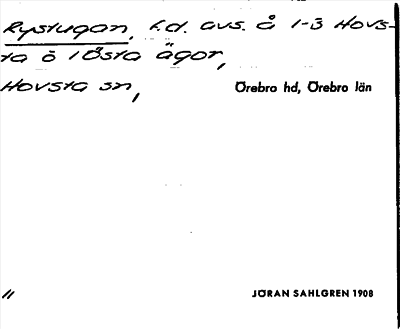 Rystugan, f.d. avs. å 1-3 Hovs-
ta ö i Östa ägor,
Hovsta sn,
Örebro hd, Örebro län
11
JÖRAN SAHLGREN 1908